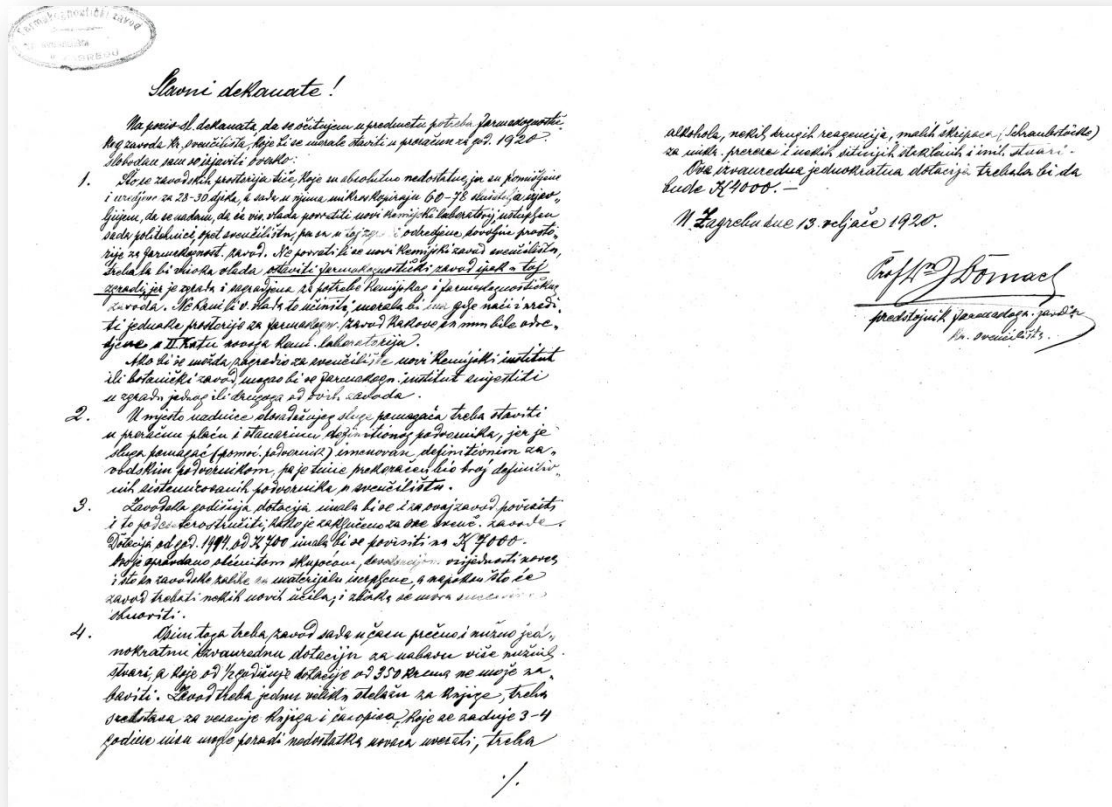 Farmakognostički zavod
U ZAGREBU
Slavni dekanate!
Na poziv sl. dekanata, da se očitujem u predmetu potreba farmakognostič-
kog zavoda kr. sveučilišta, koje bi se morale staviti u proračun za god. 1920
slobodan sam izjaviti ovo:
1. Što se zavodskih prostorija tiče, koje su absolutno nedostatne, jer su pomišljene
i uredjene za 28-30 djaka, a sada u njima mikroskopiraju 60-78 izjav-
ljujem, da se nadam, da će vis. vlada povratiti novi kemijski laboratorij ustupljen
sada politehnici, opet sveučilištu, pa se u toj i odredjene dovoljne prosto-
rije za farmakognost. zavod. Ne povrati li se novi kemijski zavod sveučilištu,
trebala bi visoka vlada ostaviti farmakognostički zavod ipak u toj
zgradi, jer je zgrada i sagradjena za potrebe kemijskog i farmakognostičkog
zavoda. Ne kani li v. vlada to učiniti, morala bi gdje naći i uredi-
ti jednake prostorije za farmakogn. zavod kakove su mu bile odre-
djene u II. katu novoga kem. laboratorija.
Ako bi se možda zagradio za sveučilište novi kemijski institut
ili botanički zavod, mogao bi se farmakogn. institut smjestiti
u zgradu jednog ili drugoga od ovih zavoda.
2. U mjesto nadnice dosadašnjeg sluge pomagača treba staviti
u proračun plaću i stanarinu definitivnog podvornika, jer je
sluga pomagač (pomoć. podvornik) imenovan definitivnim za-
vodskim podvornikom, pa je time prekoračen bio broj definitiv-
nih sistemizovanih podvornika u sveučilištu.
3. Zavodska godišnja dotacija imala bi se i za ovaj zavod povisiti
i to podeseterostručiti, kako je zaključeno za sve sveuč. zavode.
Dotacija od god. 1914. od K 700 imala bi se povisiti na K 7000.-
Ovo je opravdano silnom skupoćom, vrijednosti novca
i što su zavodske zalihe na materijalu iscrpljene, a napokon što će
zavod trebati nekih novih učila, i zbirka se mora
obnoviti.
4. Osim toga treba zavod sada u času prečno i nužno jed-
nokratnu izvanrednu dotaciju za nabavu više nužnih
stvari, a koje od ½ godišnje dotacije od 350 kruna ne može na-
baviti. Zavod treba jednu veliku stelažu za knjige, treba
sredstava za vezanje knjiga i časopisa, koje se zadnje 3-4
godine nisu mogle poradi nedostatka novaca uvezati, treba
./.
alkohola, nekih drugih reagencija, malih škripaca (Schraubstöcke)
za mikr. prereze i nekih sitnijih staklenih i inih stvari.
Ova izvanredna jednokratna dotacija trebala bi da
bude K 4000.-
U Zagrebu dne 13. veljače 1920.
Prof. Dr. J Domac
predstojnik farmakogn. zavoda
kr. sveučilišta.